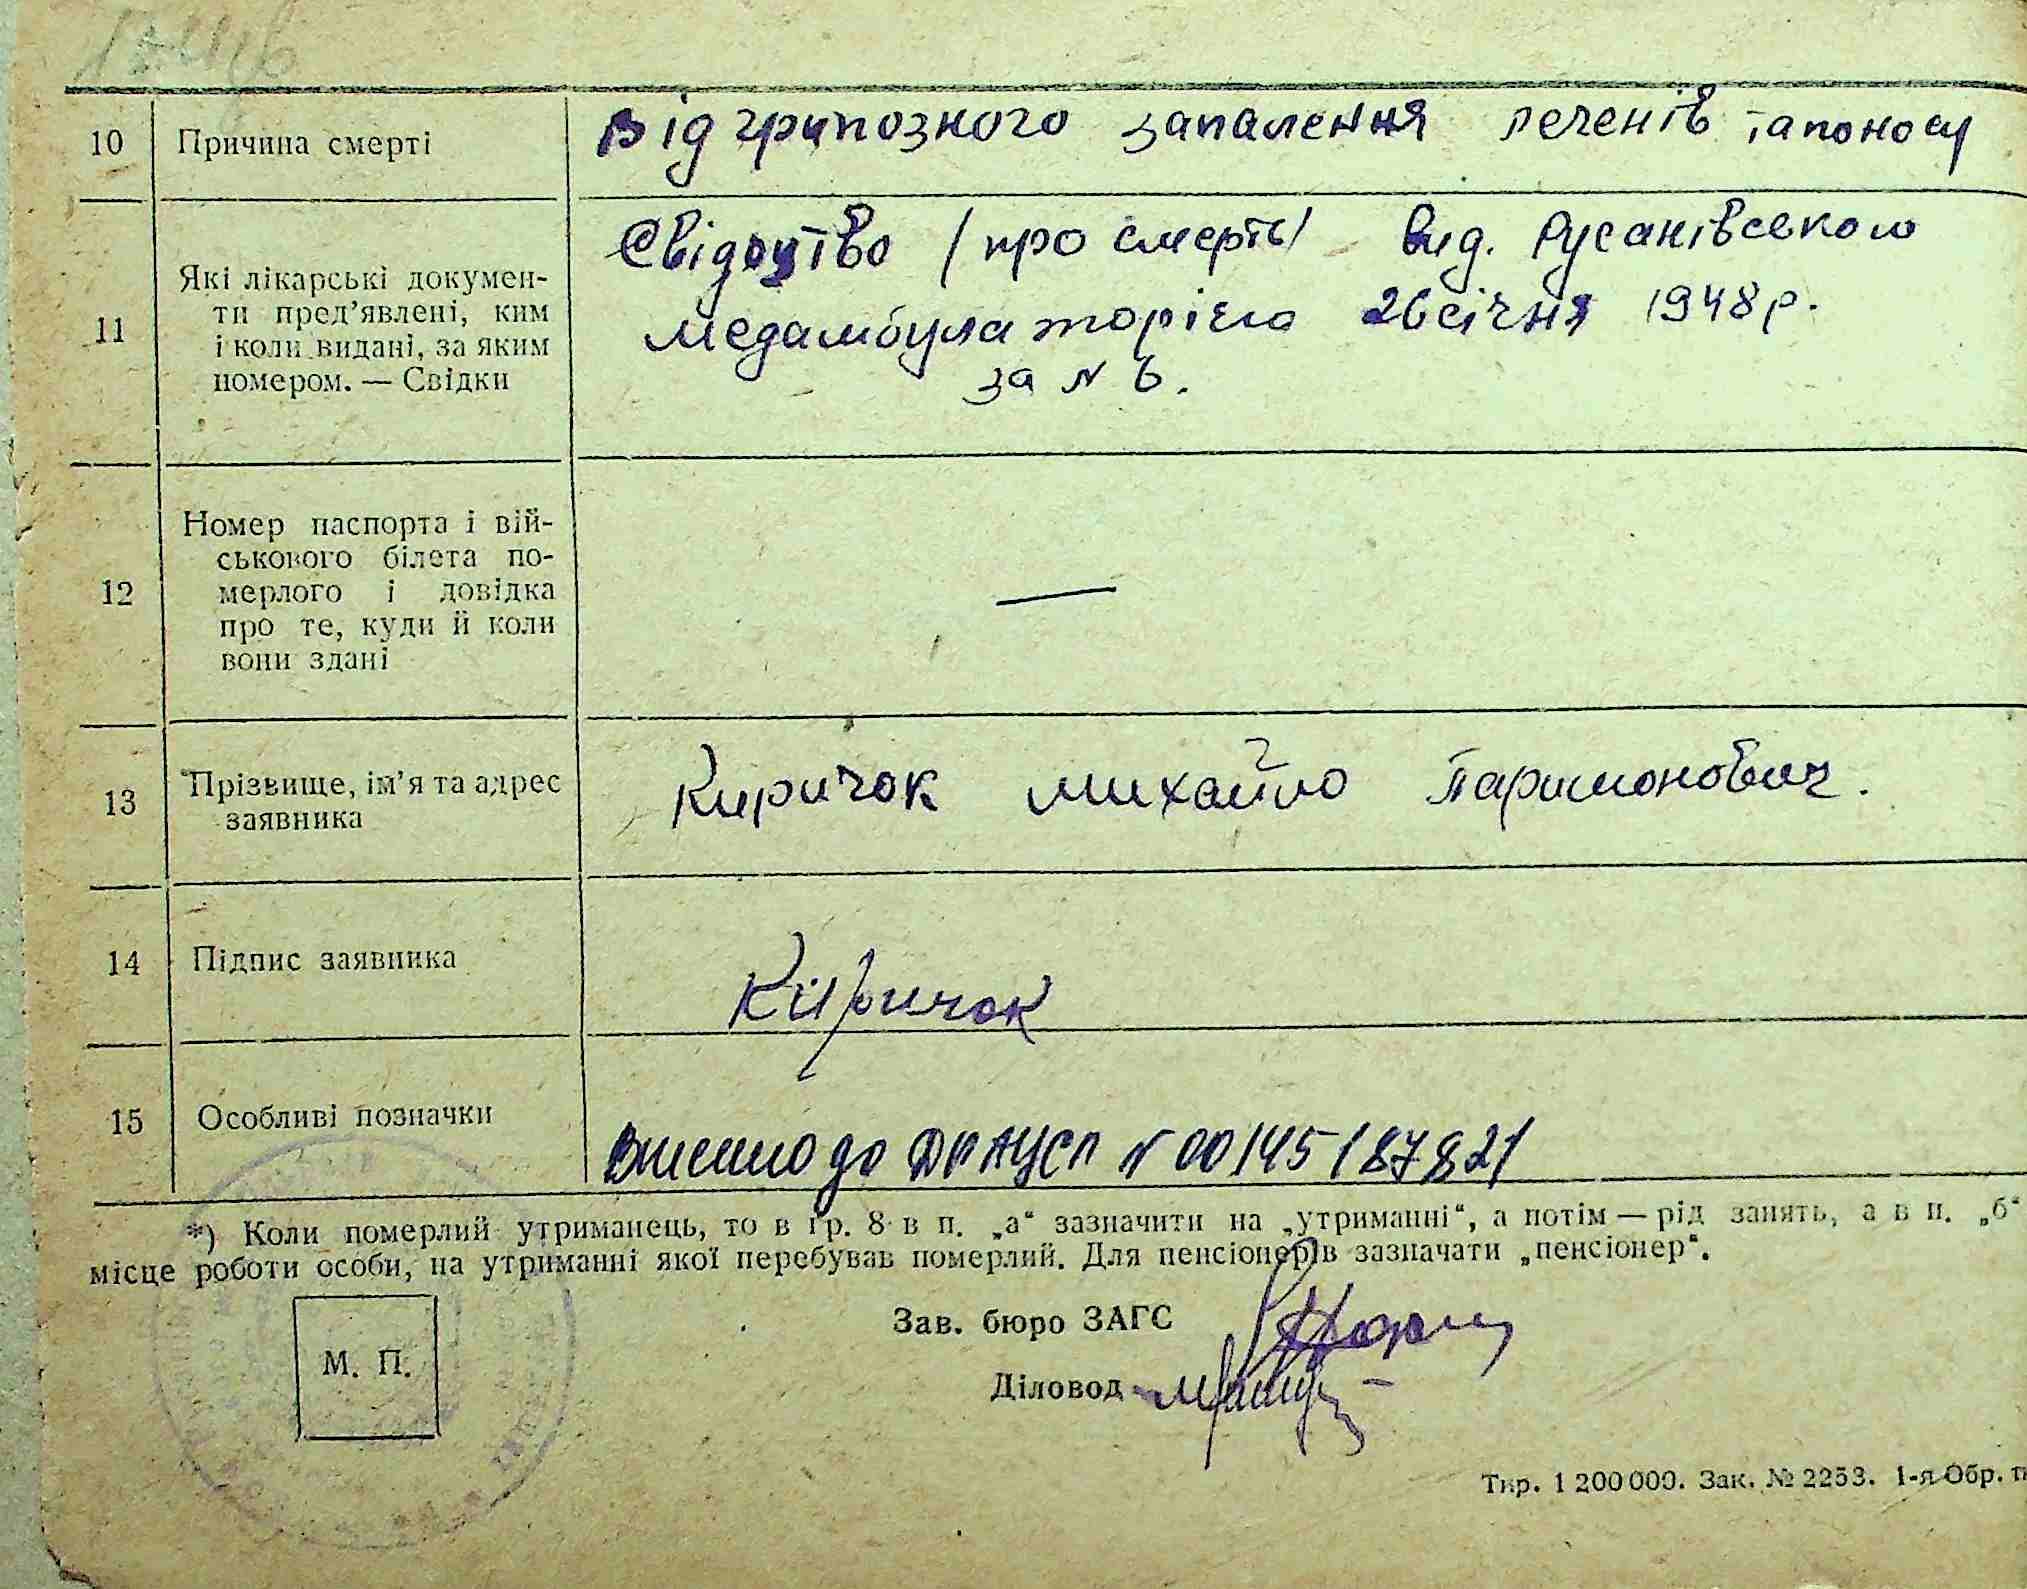 10 Причина смерті Від грипозного запалення легенів та поносу
11 Які лікарські докумен-
ти пред’явлені, ким
і коли видані, за яким
номером. — Свідки
Свідоцтво /про смерть/ вид. Русанівською
медамбулаторією 26 січня 1948 р.
за № 6.
12 Номер паспорта і вій-
ськового білета по-
мерлого і довідка
про те, куди й коли
вони здані
—
13 Прізвище, ім’я та адрес
заявника
Киричок Михайло Паримонович.
14 Підпис заявника Киричок
15 Особливі позначки Внесено до ДРАЦСГ № 00145187821
*) Коли померлий утриманець, то в гр. 8 в п. „а“ зазначити на „утриманні“, а потім — рід занять, а в п. „б“
місце роботи особи, на утриманні якої перебував померлий. Для пенсіонерів зазначати „пенсіонер“.
Зав. бюро ЗАГС
М. П.
Діловод
Тир. 1 200 000. Зак. № 2253. 1-я Обр. ти